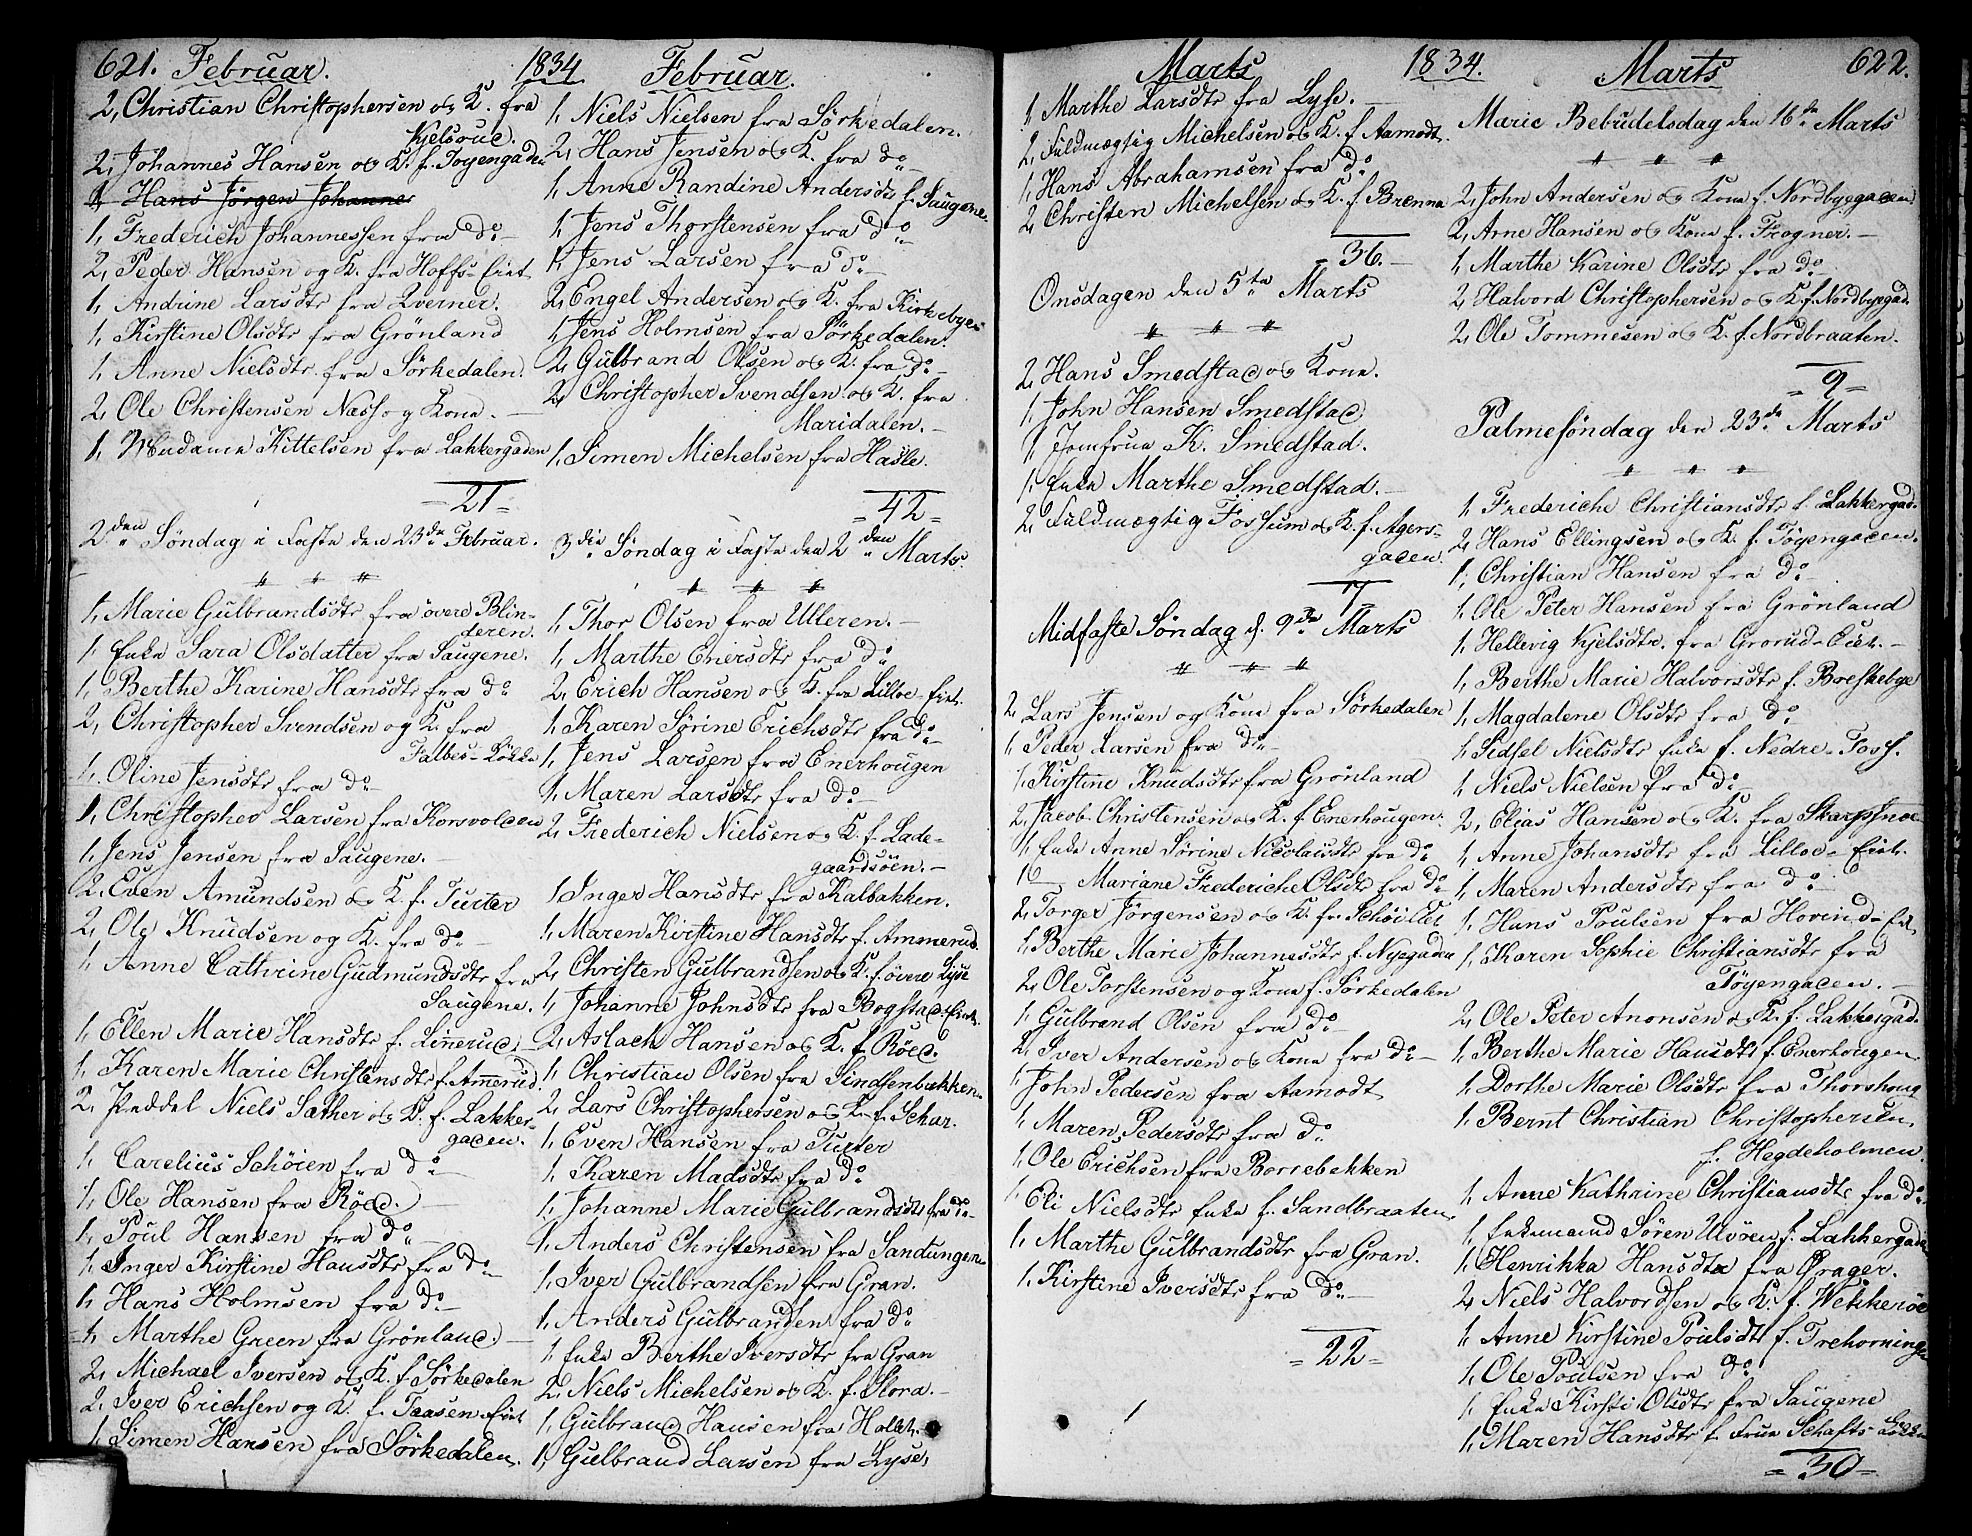 621. Februar. 1834 Februar.
2, Christian Christophersen og K. fra
Kjelsrud.
2, Johannes Hansen og K. f. Töyengaden
1, Hans Jörgen Johannes
1, Frederich Johannessen fra do
2, Peder Hansen og K. fra Hoffs-Eiet
1, Andrine Larsdtr fra Qverner.
1, Kirstine Olsdtr fra Grönland
1, Anne Nielsdtr fra Sörkedalen
2, Ole Christensen Næss og Kone.
1, Madame Kittelsen fra Lakkergaden
=21=
2den Söndag i Faste den 23de Februar.
1, Marie Gulbrandsdtr fra övere Blin-
deren.
1, Enke Sara Olsdatter fra Saugene.
1, Berthe Karine Hansdtr fra do
2, Christopher Svendsen og K. fra
Falbes-Lökke
1, Oline Jensdtr fra do
1, Christopher Larsen fra Korsvolden
1, Jens Jensen fra Saugene.
2, Even Amundsen og K. f. Turter
2, Ole Knudsen og K. fra do
1, Anne Cathrine Gudmundsdtr fra
Saugene.
1, Ellen Marie Hansdtr f. Linerud
1, Karen Marie Christensdtr f. Amerud.
2, Peddel Niels Sæther og K. f. Lakker-
gaden.
1, Carelius Schöien fra do
1, Ole Hansen fra Röed.
1, Poul Hansen fra do
1, Inger Kirstine Hansdtr fra do
1, Hans Holmsen fra do
1, Marthe Green fra Grönland.
2, Michael Iversen og K. f. Sörkedalen
2, Iver Erichsen og K. f. Taasen-Eiet
1, Simen Hansen fra Sörkedalen.
1, Niels Nielsen fra Sörkedalen.
2, Hans Jensen og K. fra do
1, Anne Randine Andersdtr f. Saugene.
1, Jens Thorstensen fra do
1, Jens Larsen fra do
2, Engel Andersen og K. fra Kirkebye
1, Jens Holmsen fra Sörkedalen.
2, Gulbrand Olsen og K. fra do
2, Christopher Svendsen og K. fra
Maridalen.
1, Simen Michelsen fra Hasle.
=42=
3die Söndag i Faste den 2den Marts.
1, Thor Olsen fra Ulleren.
1, Marthe Enersdtr fra do
2, Erich Hansen og K. fra Lilloe-Eiet.
1, Karen Sörine Erichsdtr fra do
1, Jens Larsen fra Enerhougen
1, Maren Larsdtr fra do
2, Frederich Nielsen og K. f. Lade-
gaardsöen.
1, Inger Hansdtr fra Kalbakken.
1, Maren Kirstine Hansdtr f. Ammerud.
2, Christen Gulbrandsen og K. f. övere Lyse
1, Johanne Johnsdtr fra Bogstad-Eiet.
2, Aslach Hansen og K. f. Röed.
1, Christian Olsen fra Sindsenbakken.
2, Lars Christophersen og K. f. Schar.
1, Even Hansen fra Turter
1, Karen Madsdtr fra do
1, Johanne Marie Gulbrandsdtr fra do
1, Anders Christensen fra Sandungen
1, Iver Gulbrandsen fra Gran.
1, Anders Gulbransen fra do
1, Enke Berthe Iversdtr fra Gran
2, Niels Michelsen og K. f. Flora.
1, Gulbrand Hansen fra Holet.
1, Gulbrand Larsen fra Lyse,
Marts 1834. Marts 622.
1, Marthe Larsdtr fra Lyse.
2, Fuldmægtig Michelsen og K. f. Aamodt.
1, Hans Abrahamsen fra do
2, Christen Michelsen og K. f. Brenna
=36.=
Onsdagen den 5te Marts
2, Hans Smedstad og Kone.
1, John Hansen Smedstad.
1, Jomfrue K. Smedstad.
1, Enke Marthe Smedstad.
2, Fuldmægtig Fossum og K. f. Agers-
gaden.
7
Midfaste Söndag d. 9de Marts
2, Lars Jensen og Kone fra Sörkedalen
1, Peder Larsen fra do
1, Kirstine Knudsdtr fra Grönland
2, Jacob Christensen og K. f. Enerhougen.
1, Enke Anne Sörine Nicolaisdtr fra do
1, Mariane Frederiche Olsdtr fra do
2, Torger Jörgensen og K. fr. Schöillet
1, Berthe Marie Johannesdtr f. Nyegaden
2, Ole Torstensen og Kone f. Sörkedalen
1, Gulbrand Olsen fra do
2, Iver Andersen og Kone fra do
1, John Pedersen fra Aamodt
1, Maren Pedersdtr fra do
1, Ole Erichsen fra Borrebekken
1, Eli Nielsdtr Enke f. Sandbraaten
1, Marthe Gulbrandsdtr fra Gran.
1, Kirstine Iversdtr fra do
=22=
Marie Bebudelsdag den 16de Marts
2, John Andersen og Kone f. Nordbygaden
2, Arne Hansen og Kone f. Frogner.
1, Marthe Karine Olsdtr fra do
2, Halvord Christophersen og K. f. Nordbyegad.
2, Ole Tommesen og K. f. Nordbraaten.
=9=
Palmesöndag den 23de Marts
1, Frederiche Christiansdtr f. Lakkergad.
2, Hans Ellingsen og K. f. Töyengaden.
1, Christian Hansen fra do
1, Ole Peter Hansen fra Grönland
1, Hellevig Kjelsdtr. fra Grorud-Eiet.
1, Berthe Marie Halvorsdtr f. Breskebye
1, Magdalene Olsdtr fra do
1, Sidsel Nielsdtr Enke f. Nedre-Foss.
1, Niels Nielsen fra do
2, Elias Hansen og K. fra Skarpsnoe
1, Anne Johansdtr fra Lilloe-Eiet.
1, Maren Andersdtr fra do
1, Hans Poulsen fra Hovind-Eiet
1, Karen Sophie Christiansdtr fra
Töyengaden.
2, Ole Peter Anonsen og K. f. Lakkergad.
1, Berthe Marie Hansdtr f. Enerhougen
1, Dorthe Marie Olsdtr fra Thorshoug
1, Bernt Christian Christophersen,
f. Hegdeholmen.
1, Anne Kathrine Christiansdtr fra do
1, Enkemand Sören Ulvöen f. Lakkergade
1, Henrikka Hansdtr fra Qrager.
2, Niels Halvordsen og K. f. Wekkeröe
1, Anne Kirstine Poulsdtr f. Trehorningen
1, Ole Poulsen fra do
1, Enke Kirsti Olsdtr fra Saugene
1, Maren Hansdtr f. Frue Schafts-Lökke
=30=